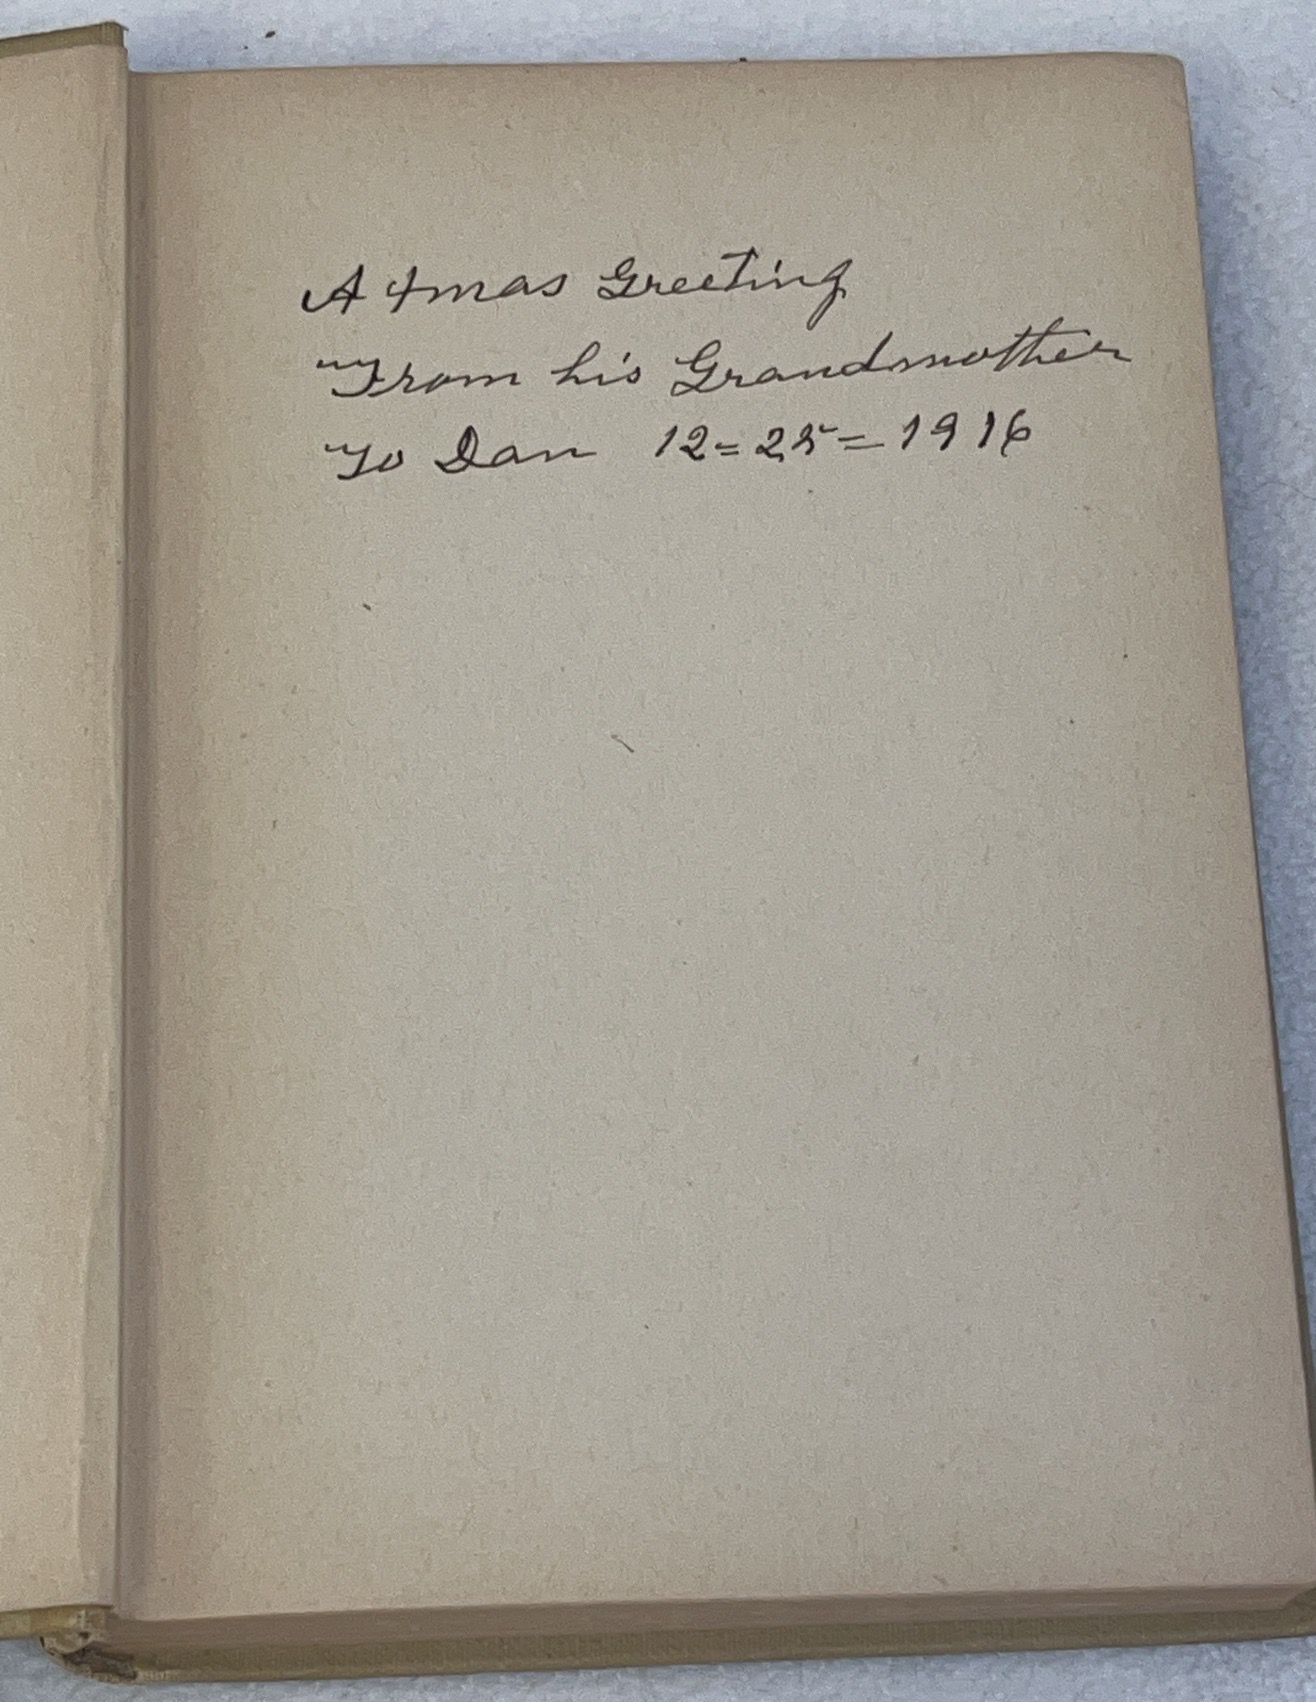 A Xmas Greeting
From his Grandmother
To Dan 12=25=1916